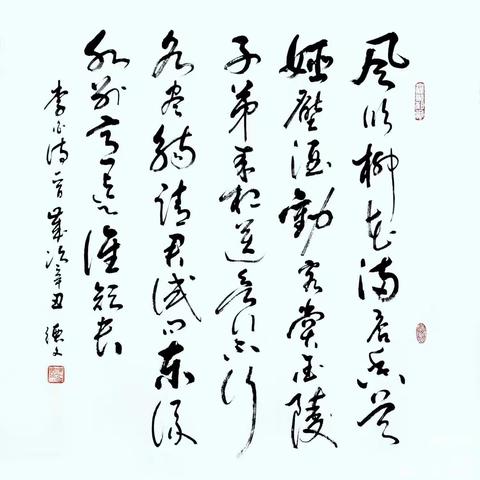 風吹柳花滿店香吳
姬壓酒勸客嘗金陵
子弟來相送欲行不行
各盡觴請君試問東流
水別意與之誰短長
李白詩一首歲次辛丑德文